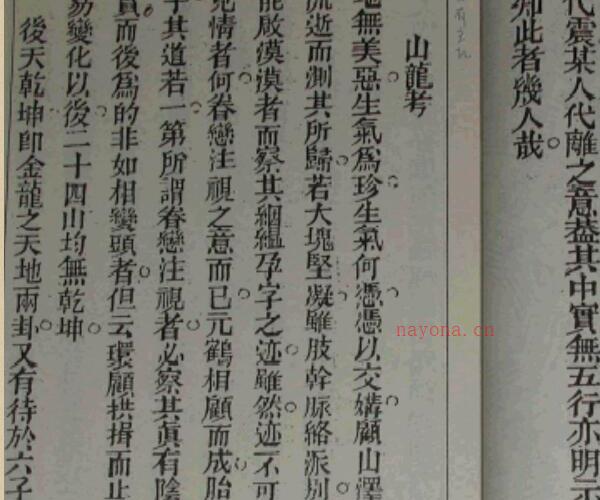 代震某人代離之意蓋其中實無五行亦明示
知此者幾人哉
山龍考
地無美惡生氣為珍生氣何憑憑以交媾顧山澤
流逝而測其所歸若大塊堅凝雖肢幹脈絡派別
能啟漠漠者而察其絪縕孕字之迹雖然迹不可
見情者何眷戀注視之意而已元鶴相顧而成胎
子其道若一第所謂眷戀注視者必察其眞有陰
實而後為的非如相巒頭者但云環顧拱揖而止
易變化以後二十四山均無乾坤
後天乾坤即金龍之天地兩卦又有待於六子
nayona.cn